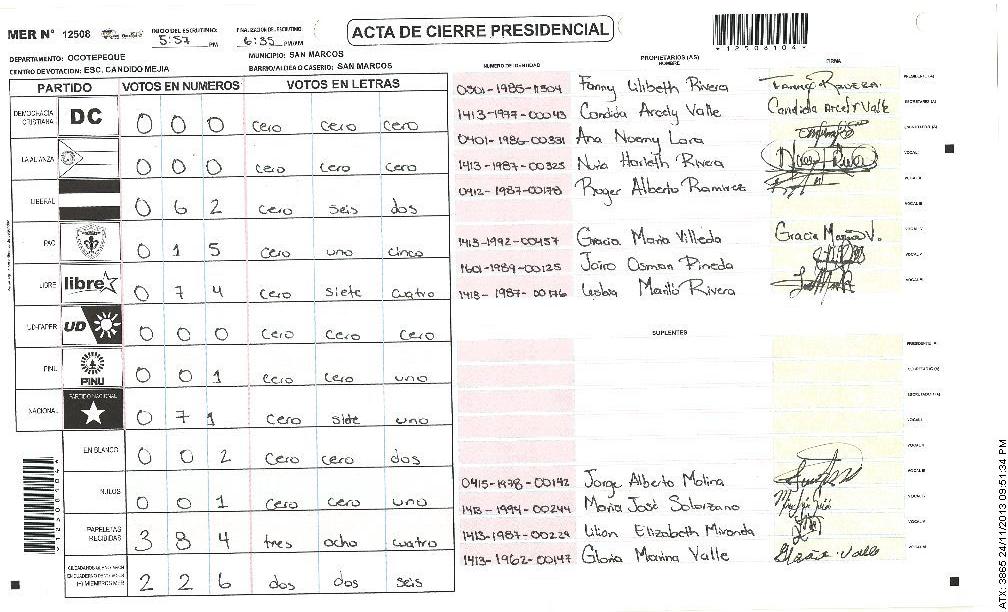 ACTA DE CIERRE PRESIDENCIAL
MER N° 12508
INICIO DEL ESCRUTINIO: 5:57 PM
FINALIZACION DEL ESCRUTINIO: 6:35 PM/AM
*12508104*
DEPARTAMENTO: OCOTEPEQUE
MUNICIPIO: SAN MARCOS
CENTRO DE VOTACION: ESC. CANDIDO MEJIA
BARRIO/ALDEA O CASERIO: SAN MARCOS
PARTIDO VOTOS EN NUMEROS VOTOS EN LETRAS
DEMOCRACIA CRISTIANA DC 0 0 0 cero cero cero
LA ALIANZA 0 0 0 cero cero cero
LIBERAL 0 6 2 cero seis dos
PAC 0 1 5 cero uno cinco
LIBRE libre 0 7 4 cero siete cuatro
UD-FAPER UD 0 0 0 cero cero cero
PINU PINU 0 0 1 cero cero uno
NACIONAL PARTIDO NACIONAL 0 7 1 cero siete uno
EN BLANCO 0 0 2 cero cero dos
NULOS 0 0 1 cero cero uno
PAPELETAS RECIBIDAS 3 8 4 tres ocho cuatro
2 2 6 dos dos seis
NUMERO DE IDENTIDAD PROPIETARIOS (AS) NOMBRE FIRMA
Fanny Lilibeth Rivera Fanny Rivera. PRESIDENTE (A)
1413-1977-00043 Candida Arcely Valle Candida Arcely Valle SECRETARIO (A)
0401-1986-00331 Ana Noemy Lara
1413-1987-00325 Nuria Harleth Rivera VOCAL I
0412-1987-00178 Roger Alberto Ramirez VOCAL II
VOCAL III
1413-1992-00457 Gracia Maria Villeda Gracia Maria V. VOCAL IV
1601-1989-00125 Jairo Osman Pineda VOCAL V
1413-1987-00176 Lesbia Rivera
SUPLENTES
PRESIDENTE (A)
SECRETARIO (A)
VOCAL I
VOCAL II
0415-1978-00142 Jorge Alberto Molina VOCAL III
1413-1994-00244 Maria José Solorzano VOCAL IV
1413-1987-00229 Lilian Elizabeth Miranda VOCAL V
1413-1962-00147 Gloria Marina Valle VOCAL VI
ATX: 3865 24/11/2013 09:51:34 PM